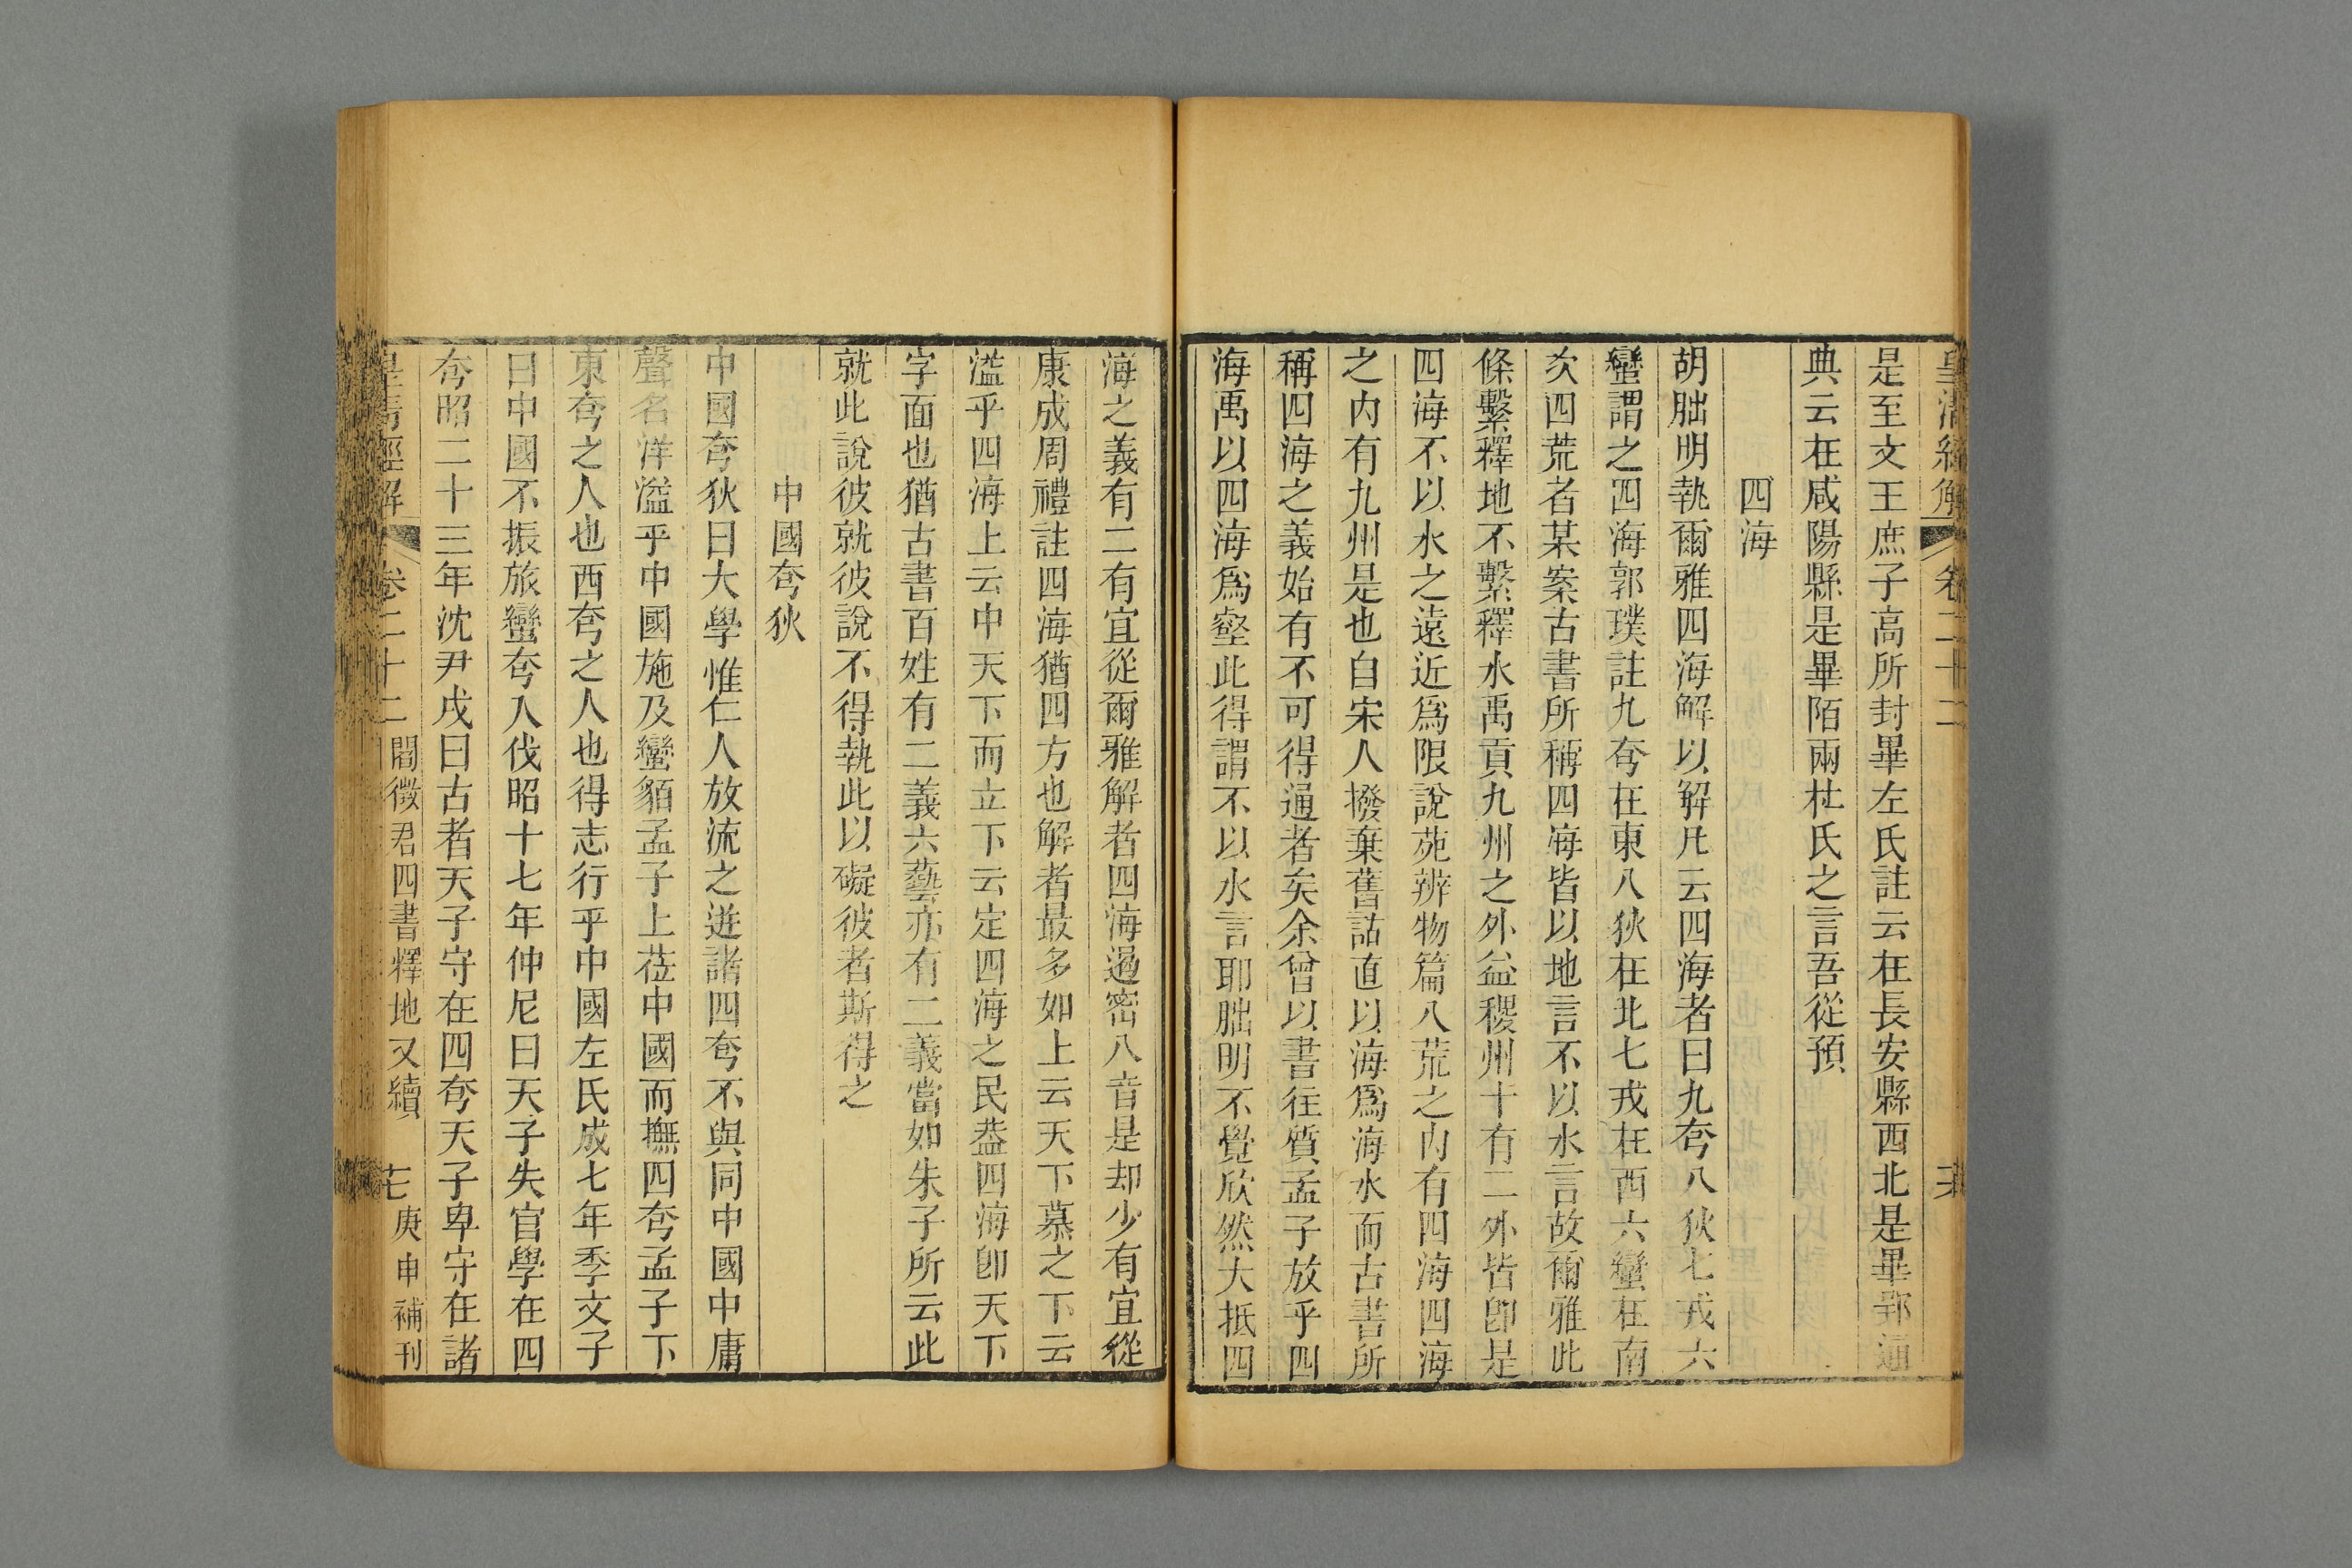 皇清經解
卷二十二
是至文王庶子高所封畢左氏註云在長安縣西北是畢郢通
典云在咸陽縣是畢陌兩杜氏之言吾從預
四海
胡朏明執爾雅四海解以解凡云四海者曰九夸八狄七戎六
蠻謂之四海郭璞註九夸在東八狄在北七戎在西六蠻在南
次四荒者某案古書所稱四海皆以地言不以水言故爾雅此
條繫釋地不繫釋水禹貢九州之外益稷州十有二外皆卽是
四海不以水之遠近爲限說苑辨物篇八荒之內有四海四海
之內有九州是也自宋人撥棄舊詁直以海爲海水而古書所
稱四海之義始有不可得通者矣余曾以書往質孟子放乎四
海禹以四海爲壑此得謂不以水言耶朏明不覺欣然大抵四
海之義有二有宜從爾雅解者四海遏密八音是却少有宜從
康成周禮註四海猶四方也解者最多如上云天下慕之下云
溢乎四海上云中天下而立下云定四海之民葢四海卽天下
字面也猶古書百姓有二義六藝亦有二義當如朱子所云此
就此說彼就彼說不得執此以礙彼者斯得之
中國夸狄
中國夸狄曰大學惟仁人放流之迸諸四夸不與同中國中庸
聲名洋溢乎中國施及蠻貊孟子上莅中國而撫四夸孟子下
東夸之人也西夸之人也得志行乎中國左氏成七年季文子
曰中國不振旅蠻夸入伐昭十七年仲尼曰天子失官學在四
夸昭二十三年沈尹戌曰古者天子守在四夸天子卑守在諸
皇清經解
卷二十二
閻徵君四書釋地又續
庚申補刊